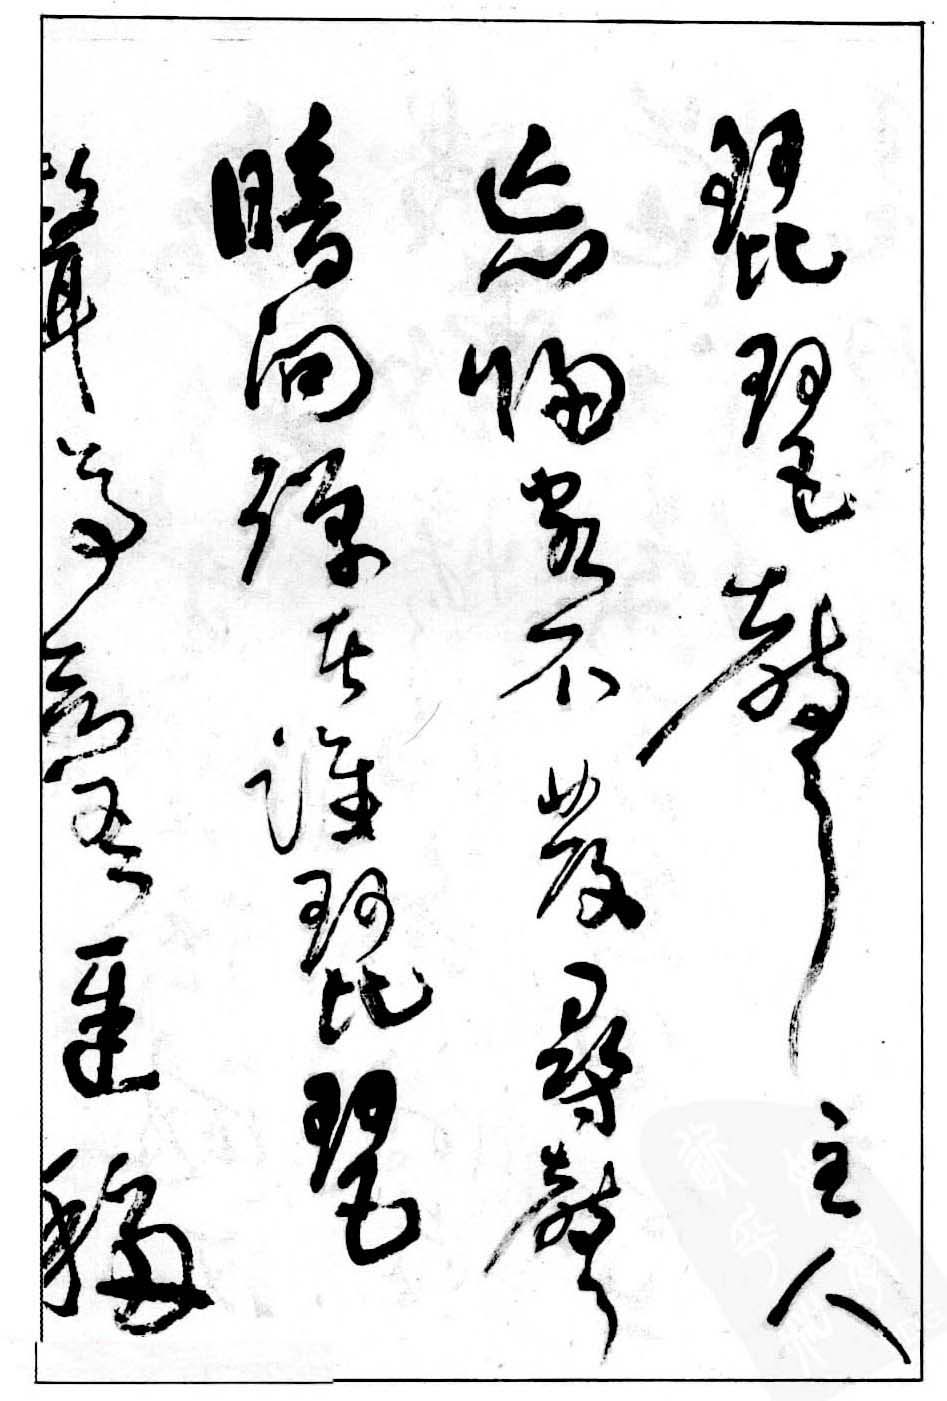 琵琶聲主人
忘歸客不發尋聲
暗問彈者誰琵琶
聲停欲語遲移